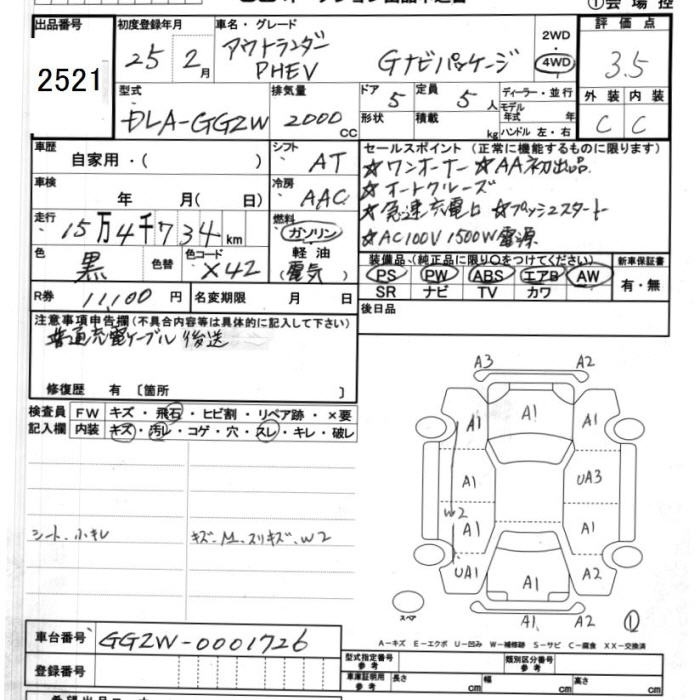 ①会場控
出品番号 初度登録年月 車名・グレード 評価点
2521 25年2月 アウトランダー PHEV Gナビパッケージ 2WD 4WD 3.5
型式 排気量 ドア 5 定員 5人 ディーラー・並行 外装 内装
DLA-GG2W 2000cc 形状 積載 kg モデル年式 年 ハンドル 左・右 C C
車歴 自家用・( ) シフト AT セールスポイント(正常に機能するものに限ります)
☆ワンオーナー ☆AA初出品
車検 年 月( 日) 冷房 AAC ☆オートクルーズ
☆急速充電口 ☆プッシュスタート
走行 15万4千734km 燃料 ガソリン ☆AC100V 1500W電源
色 黒 色替 色コード X42 軽油 (電気) 装備品(純正品に限り○をつけてください) 新車保証書
PS PW ABS エアB AW 有・無
R券 11,100円 名変期限 月 日 SR ナビ TV カワ
注意事項申告欄(不具合内容等は具体的に記入して下さい) 後日品
普通充電ケーブル 後送
修復歴 有 〔箇所 〕
検査員記入欄 FW キズ・飛石・ヒビ割・リペア跡・×要
内装 キズ・汚レ・コゲ・穴・スレ・キレ・破レ
シート、小キレ キズ、M、スリキズ、W2
A3 A2
A1
A1 A1 A1
A1 UA3
W2
A1 A1
UA1 A1 A2
スペア A1 A2 ①
A-キズ E-エクボ U-凹み W-補修跡 S-サビ C-腐食 XX-交換済
車台番号 GG2W-0001726
型式指定番号 参考 類別区分番号 参考
登録番号 車庫証明用 参考 長さ cm 幅 cm 高さ cm